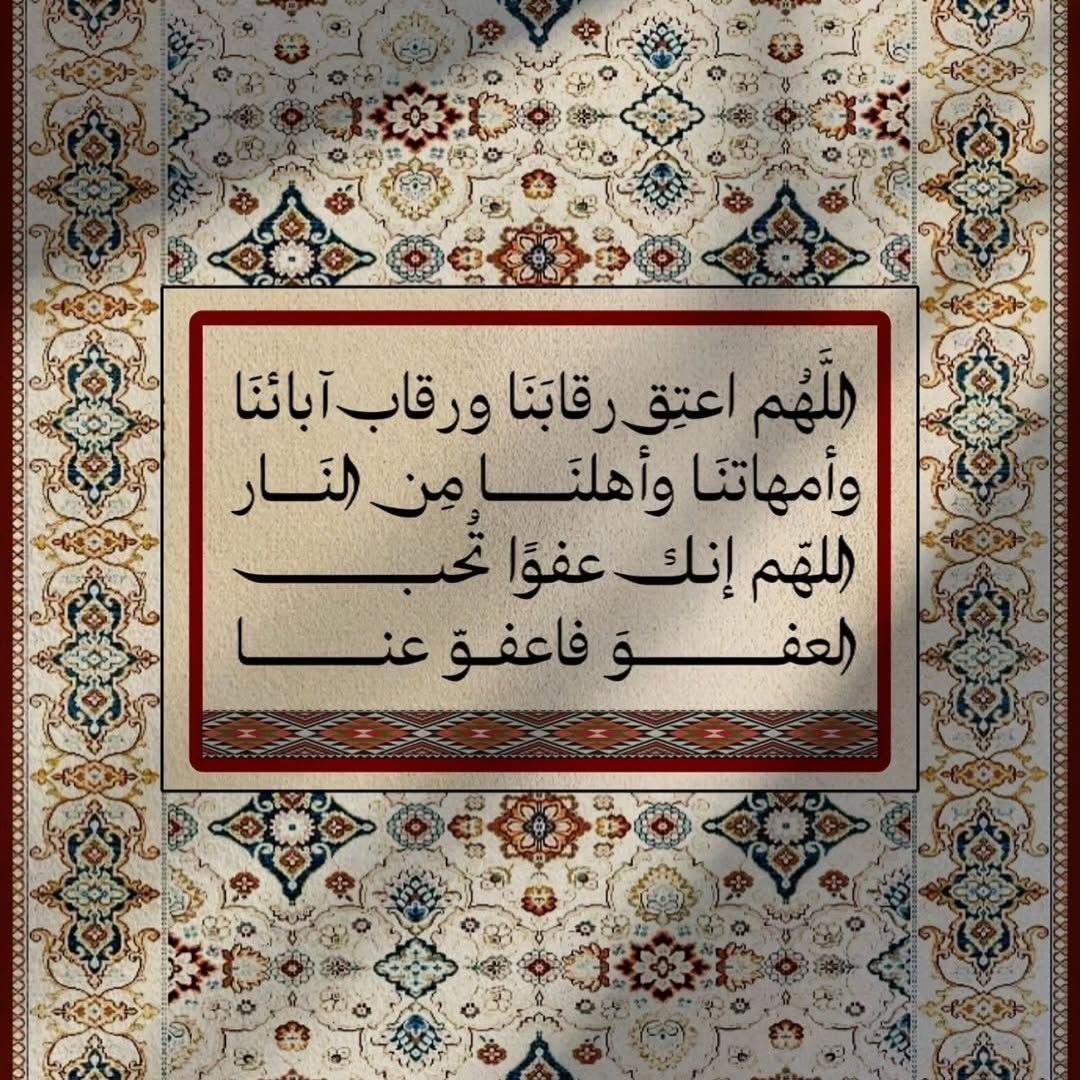 اللَّهُم اعتِق رقابَنَا ورقاب آبائنَا
وأمهاتنَا وأهلنَـــا مِن النَـار
اللهّم إنك عفوًا تُحبـــــ
العفـــــوَ فاعفـوّ عنـــــا